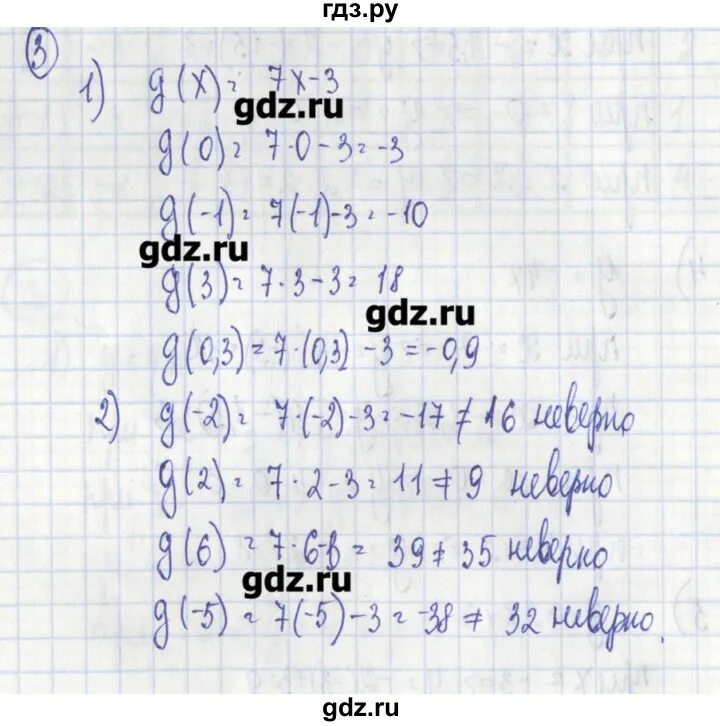 гдз.ру
3
1) g(x) = 7x-3
gdz.ru
g(0) = 7·0-3 = -3
g(-1) = 7(-1)-3 = -10
gdz.ru
g(3) = 7·3-3 = 18
gdz.ru
g(0,3) = 7·(0,3) -3 = -0,9
2) g(-2) = 7·(-2)-3 = -17 ≠ 16 неверно
g(2) = 7·2-3 = 11 ≠ 9 неверно
g(6) = 7·6-3 = 39 ≠ 35 неверно
gdz.ru
g(-5) = 7(-5)-3 = -38 ≠ 32 неверно.
gdz.ru